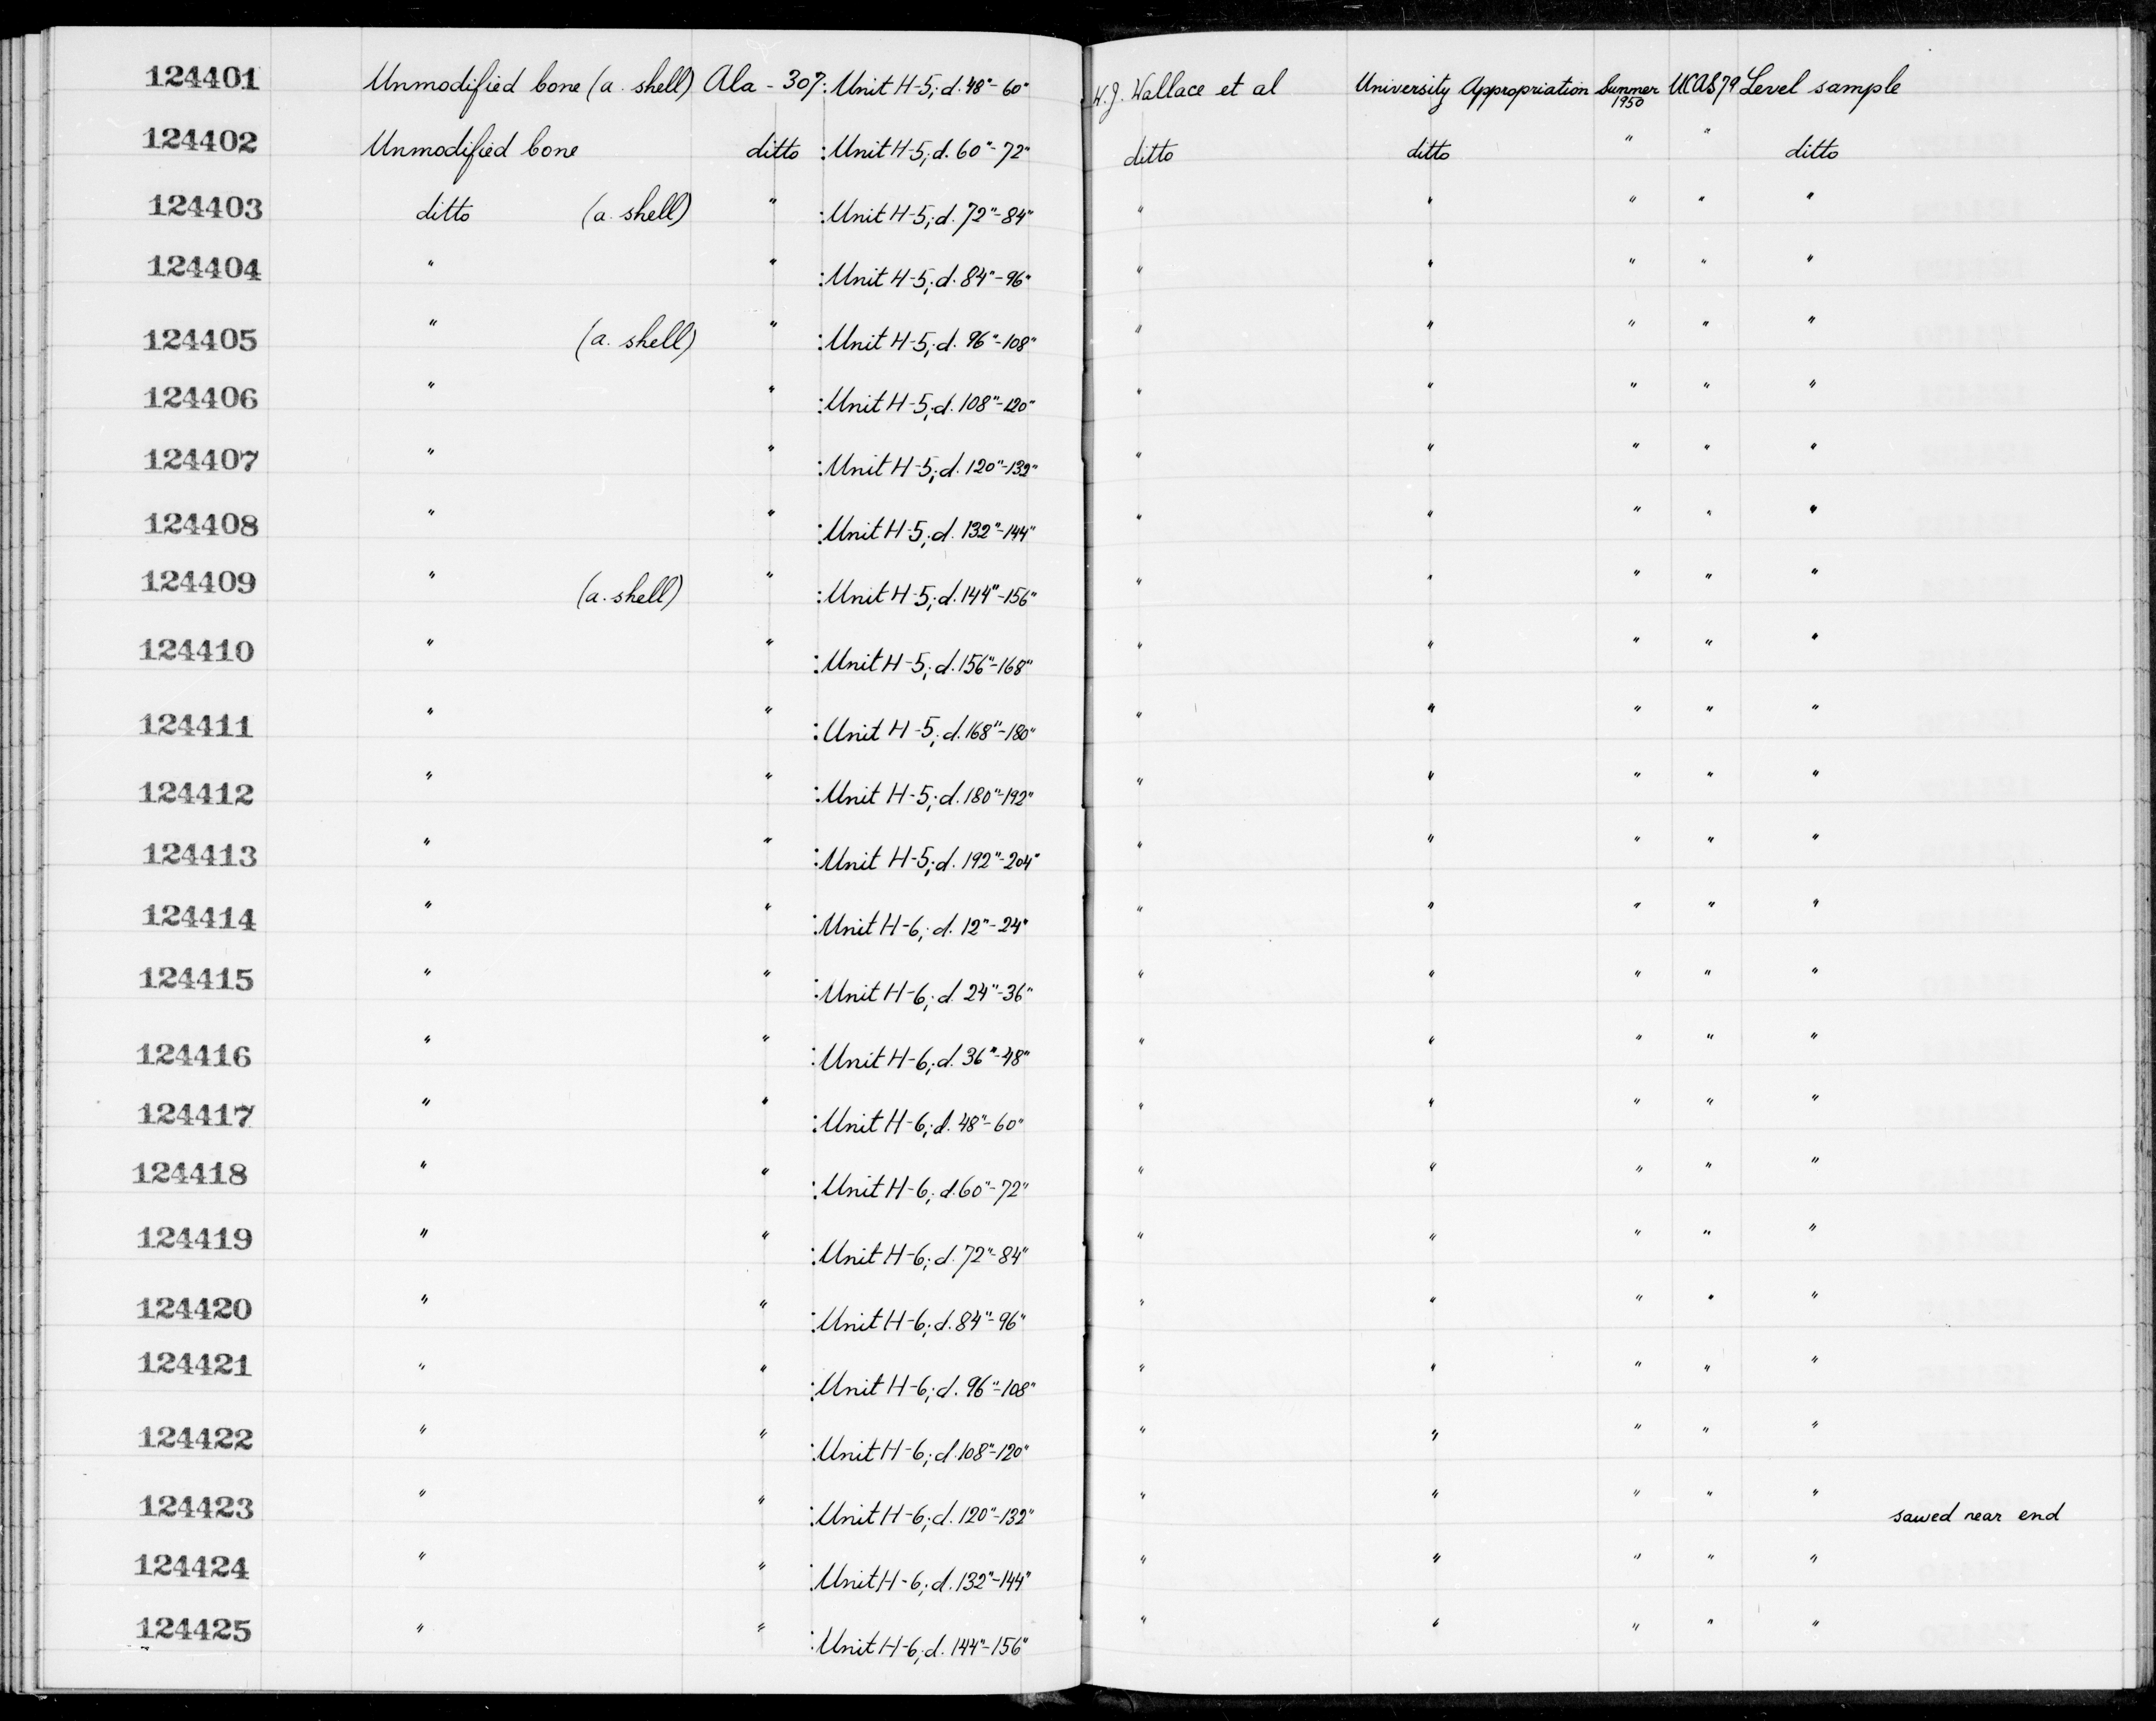 124401 Unmodified bone (a. shell) Ala - 307: Unit H-5; d. 48"-60" W.J. Wallace et al University Appropriation Summer 1950 UCAS 79 Level sample
124402 Unmodified bone ditto : Unit H-5; d. 60"-72" ditto ditto " " ditto
124403 ditto (a. shell) " : Unit H-5; d. 72"-84" " " " " "
124404 " " : Unit H-5; d. 84"-96" " " " " "
124405 " (a. shell) " : Unit H-5; d. 96"-108" " " " " "
124406 " " : Unit H-5; d. 108"-120" " " " " "
124407 " " : Unit H-5; d. 120"-132" " " " " "
124408 " " : Unit H-5; d. 132"-144" " " " " "
124409 " (a. shell) " : Unit H-5; d. 144"-156" " " " " "
124410 " " : Unit H-5; d. 156"-168" " " " " "
124411 " " : Unit H-5; d. 168"-180" " " " " "
124412 " " : Unit H-5; d. 180"-192" " " " " "
124413 " " : Unit H-5; d. 192"-204" " " " " "
124414 " " : Unit H-6; d. 12"-24" " " " " "
124415 " " : Unit H-6; d. 24"-36" " " " " "
124416 " " : Unit H-6; d. 36"-48" " " " " "
124417 " " : Unit H-6; d. 48"-60" " " " " "
124418 " " : Unit H-6; d. 60"-72" " " " " "
124419 " " : Unit H-6; d. 72"-84" " " " " "
124420 " " : Unit H-6; d. 84"-96" " " " " "
124421 " " : Unit H-6; d. 96"-108" " " " " "
124422 " " : Unit H-6; d. 108"-120" " " " " "
124423 " " : Unit H-6; d. 120"-132" " " " " " sawed near end
124424 " " : Unit H-6; d. 132"-144" " " " " "
124425 " " : Unit H-6; d. 144"-156" " " " " "